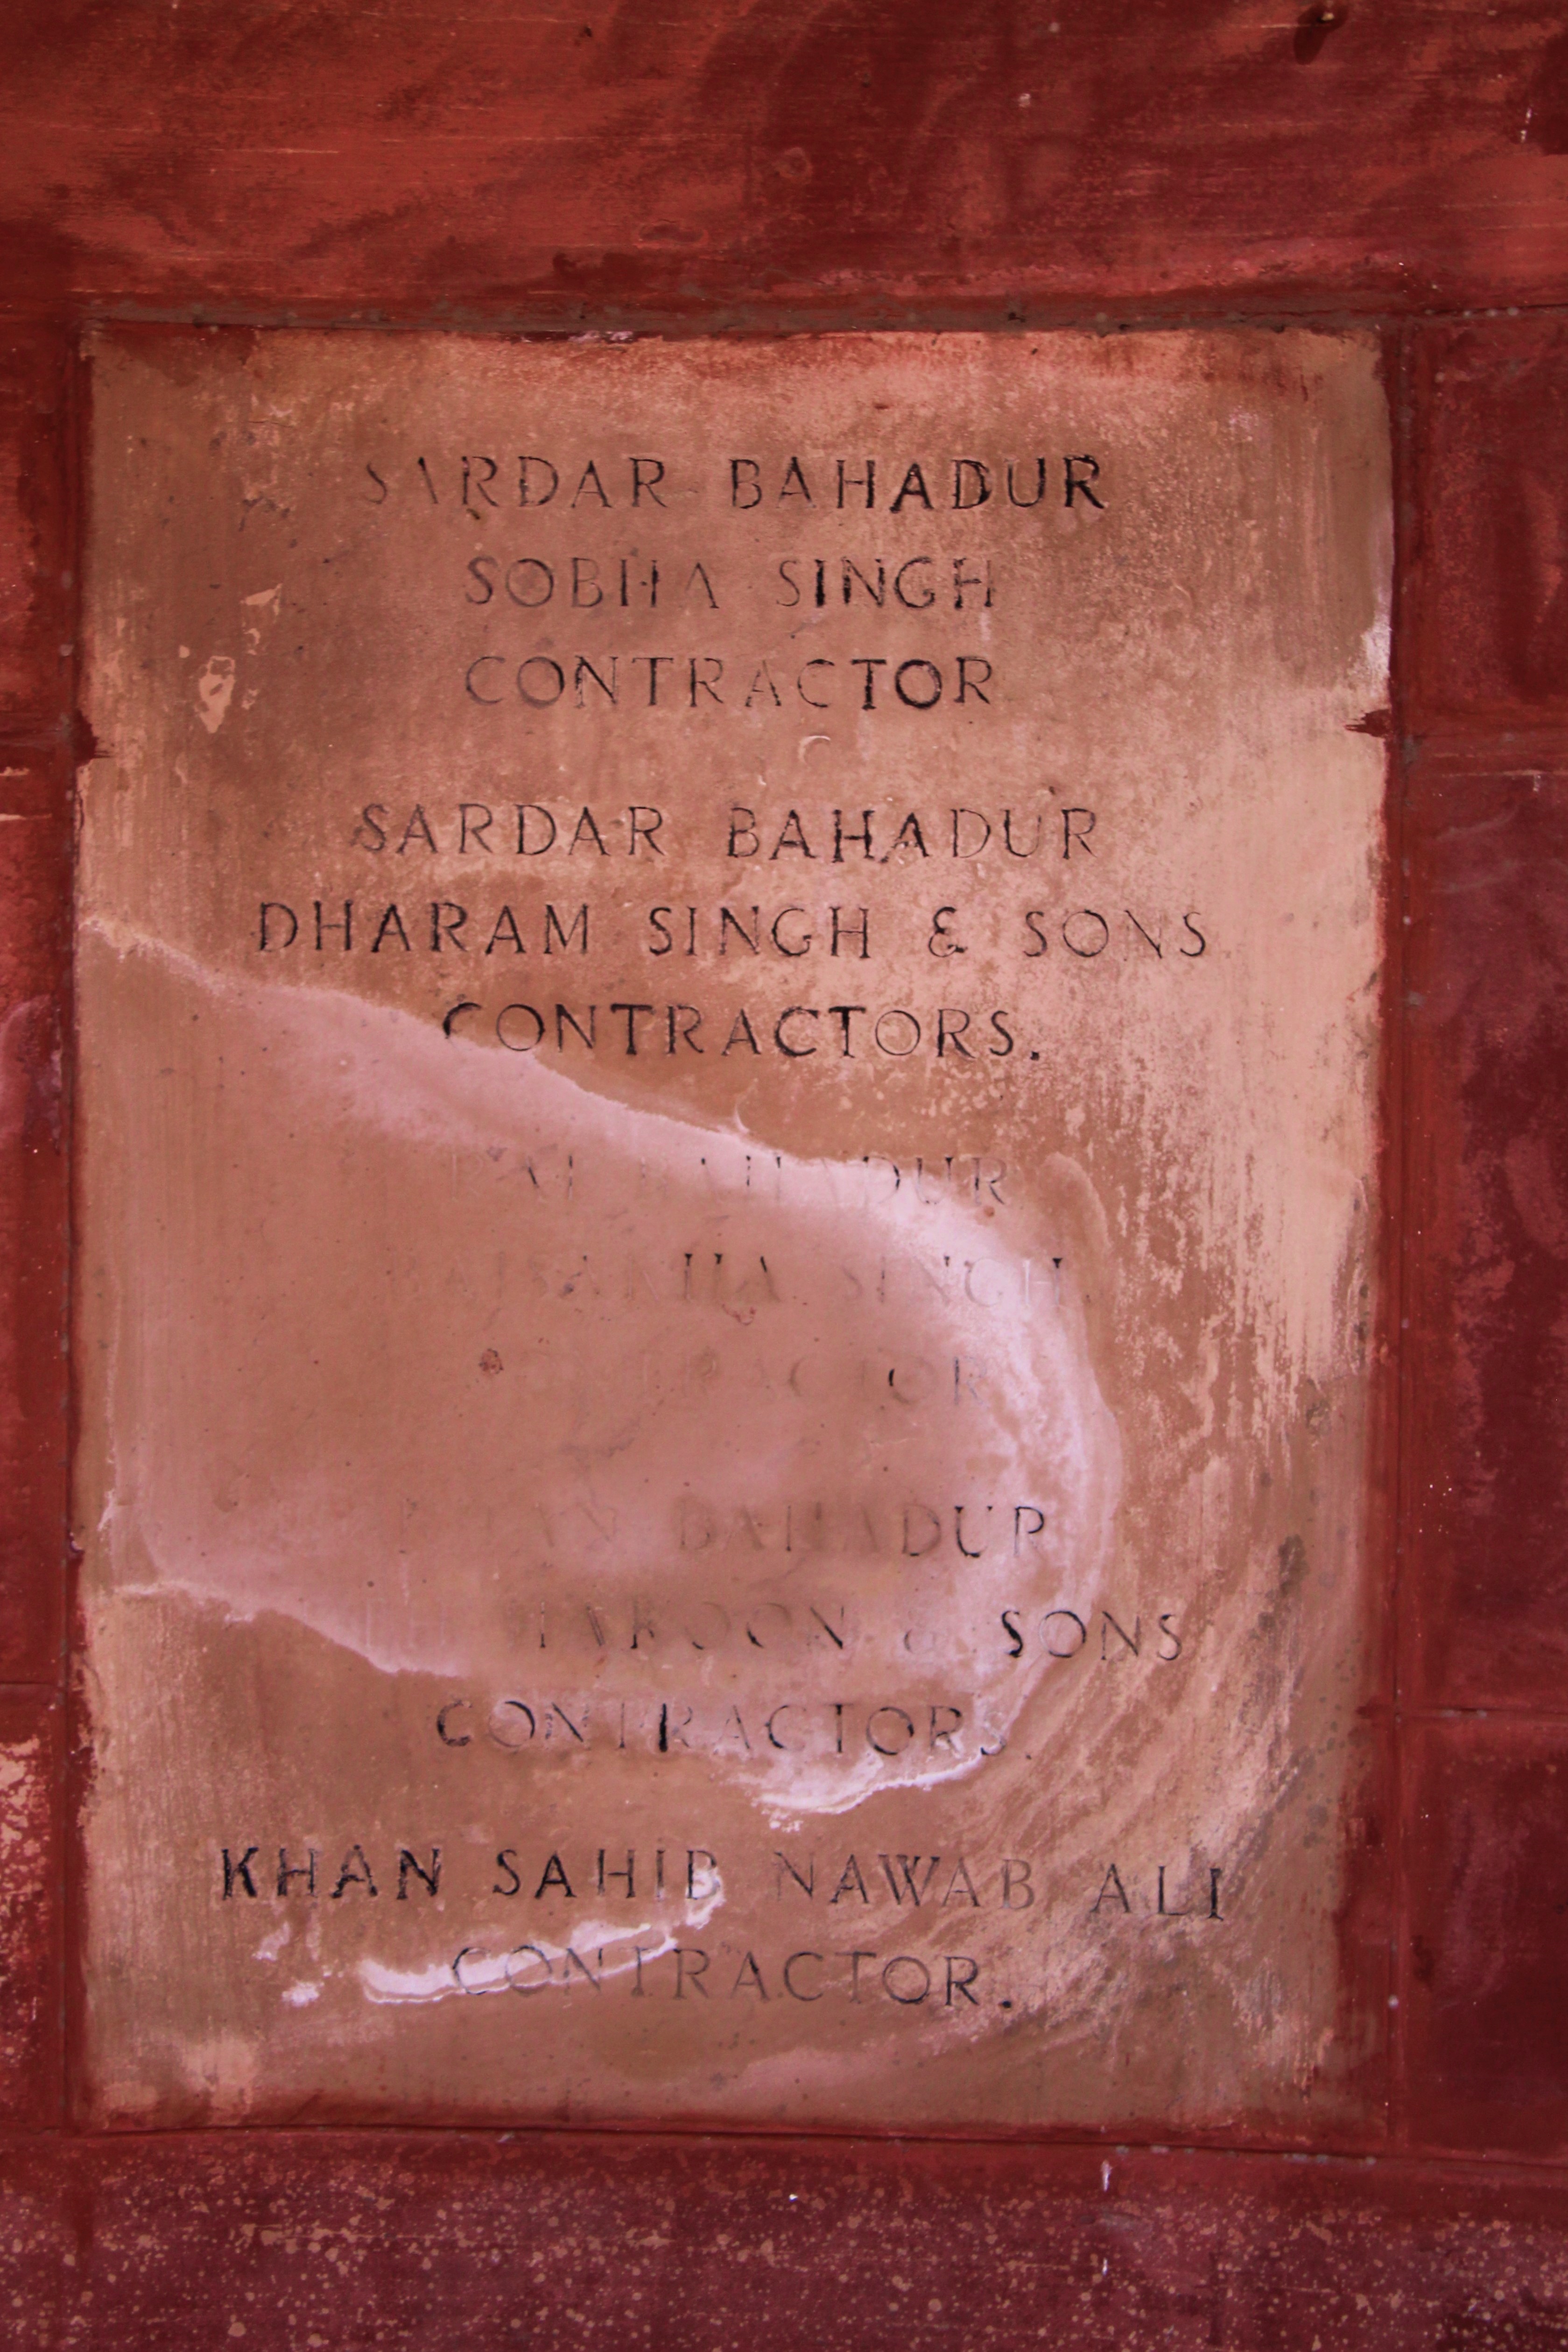 SARDAR BAHADUR
SOBHA SINGH
CONTRACTOR
SARDAR BAHADUR
DHARAM SINGH & SONS
CONTRACTORS.
RAI BAHADUR
BAISAKHA SINGH
CONTRACTOR
KHAN BAHADUR
HAROON & SONS
CONTRACTORS.
KHAN SAHIB NAWAB ALI
CONTRACTOR.